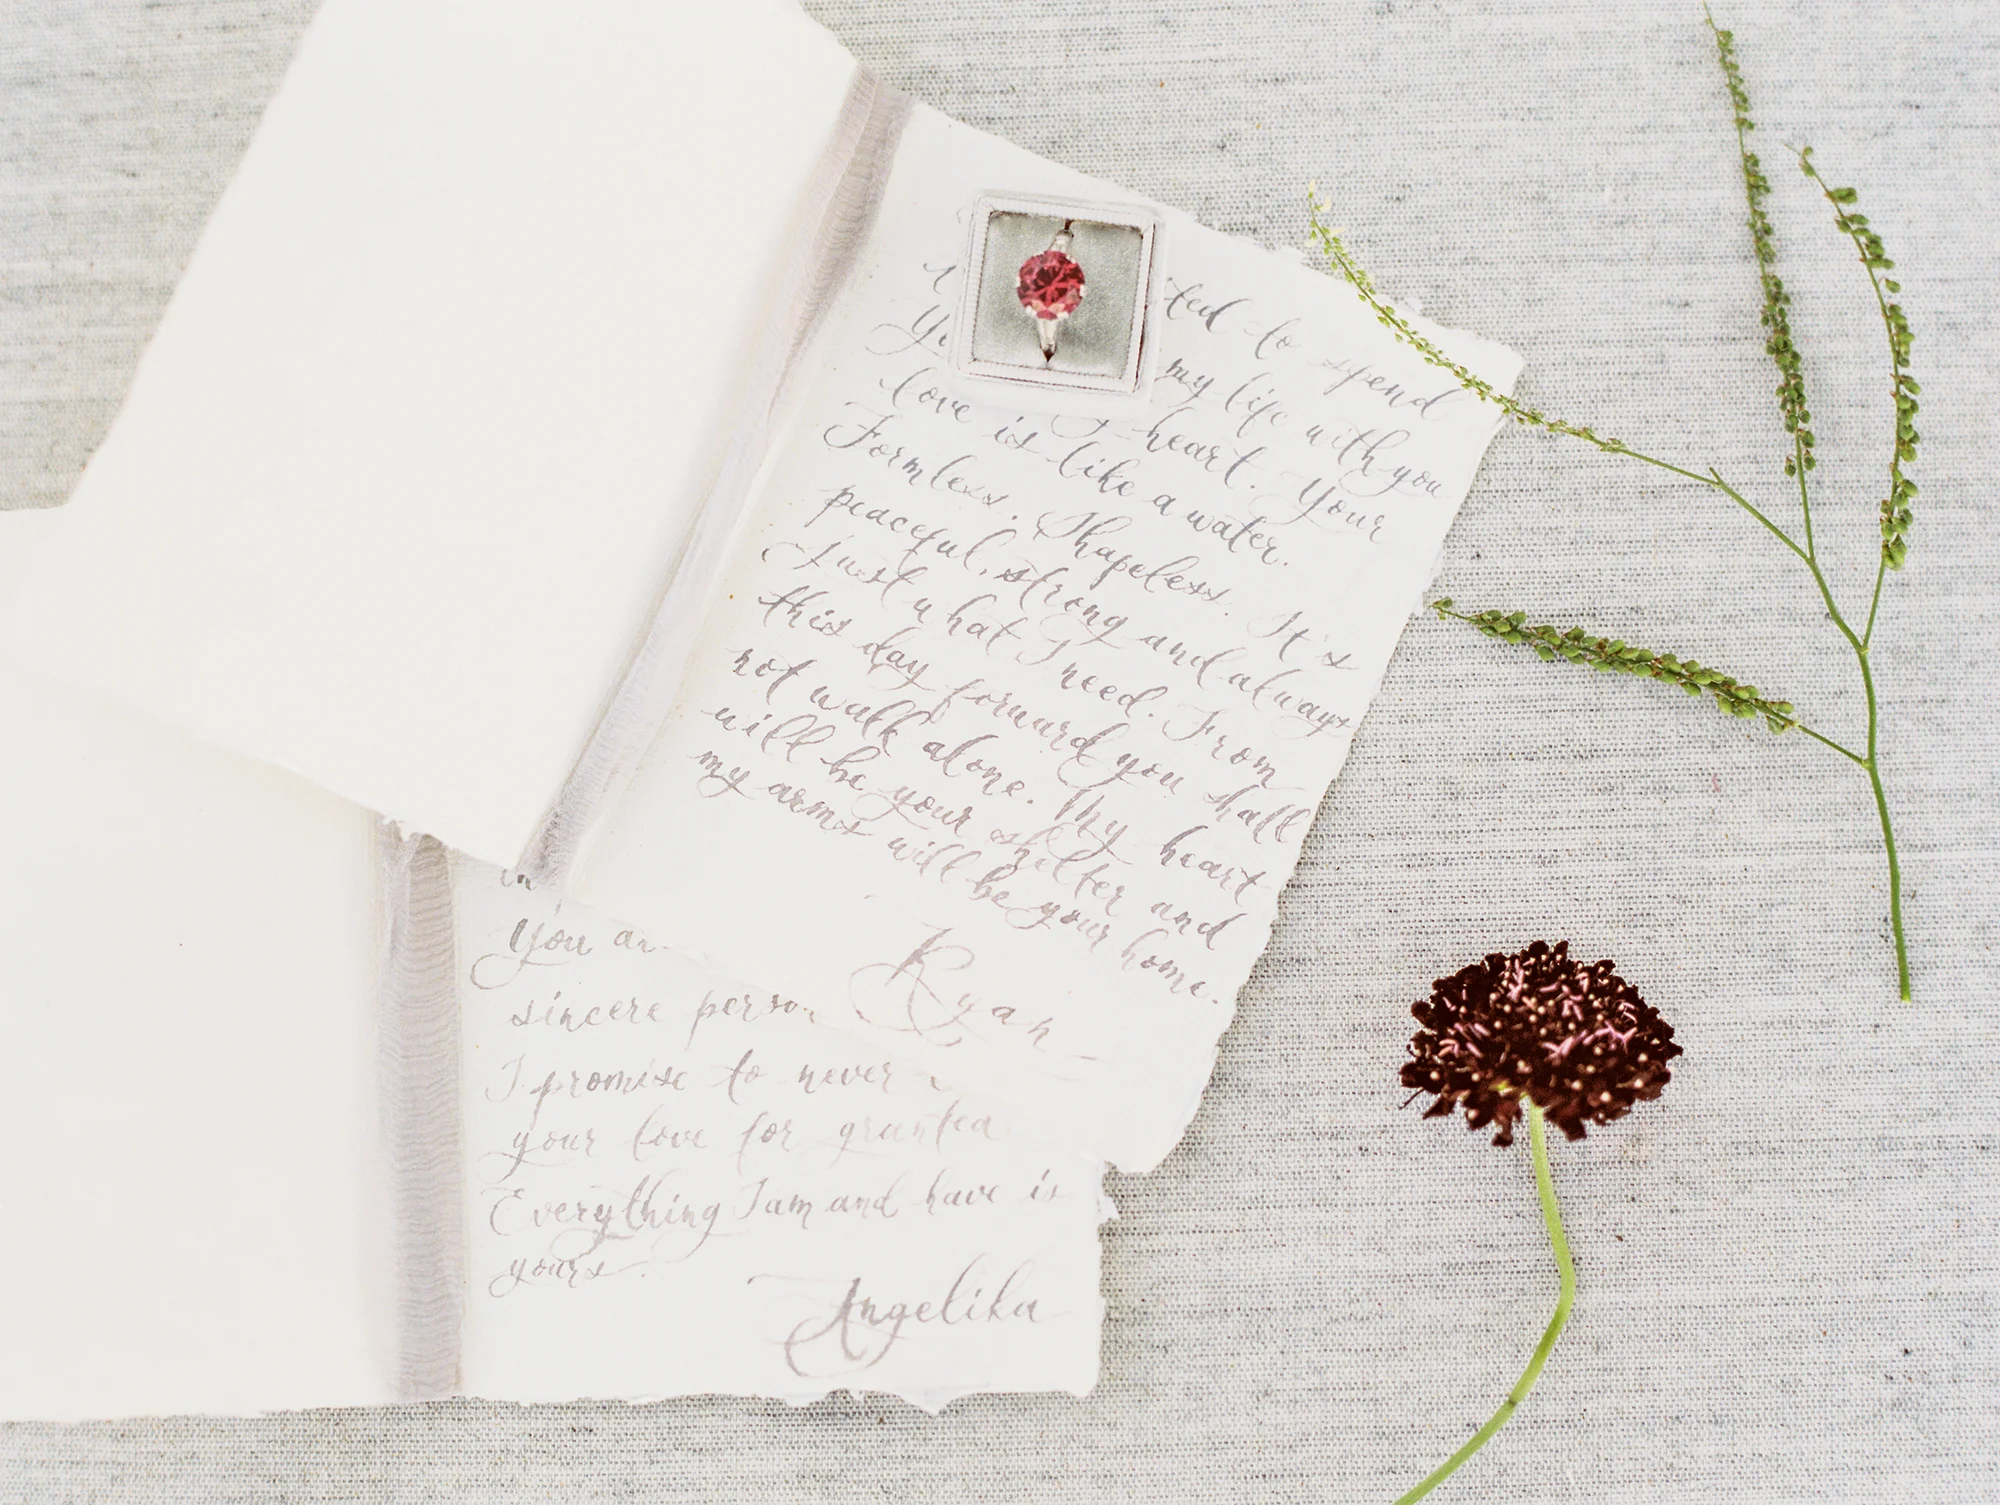 ted to spend
my life with you
heart. Your
love is like a water.
Formless. Shapeless. It's
peaceful, strong and always
Just what I need. From
this day forward you shall
not walk alone. My heart
will be your shelter and
my arms will be your home.
Ryan
You ar
sincere perso
I promise to never
your love for granted
Everything I am and have is
yours.
Angelika